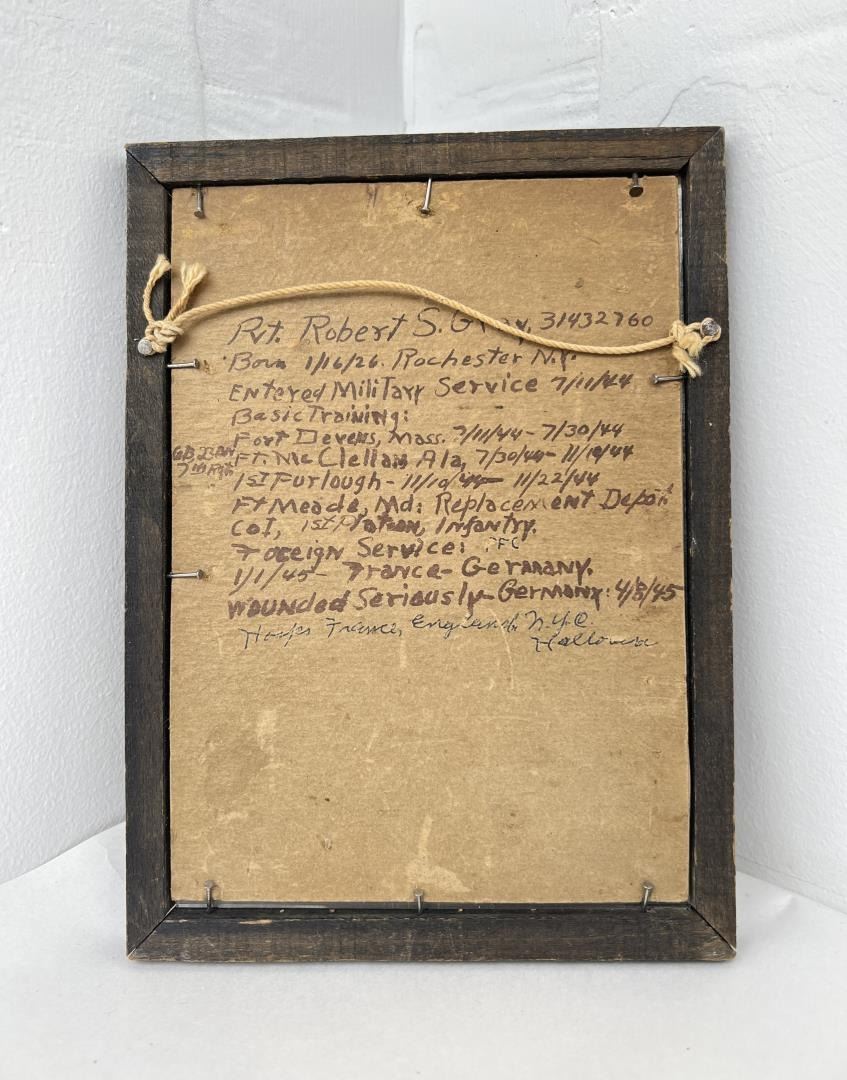 Pvt. Robert S. Gray, 31432760
Born 1/16/26. Rochester N.Y.
Entered Military Service 7/11/44
Basic Training:
Fort Devens, Mass. 7/11/44 - 7/30/44
Ft. Mc Clellan Ala, 7/30/44 - 11/10/44
1st Furlough - 11/10/44 - 11/22/44
Ft Meade, Md: Replacement Depot
Co I, 1st Platoon, Infantry.
Foreign Service: PFC
1/1/45 - France - Germany.
Wounded Seriously - Germany: 4/8/45
Hosps France, England, N.Y.C.